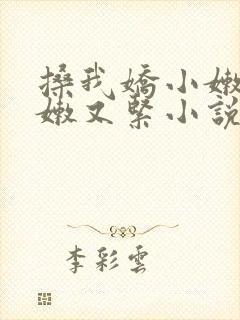 搡我嬌小嫩
嫩又緊小說
李彩雲